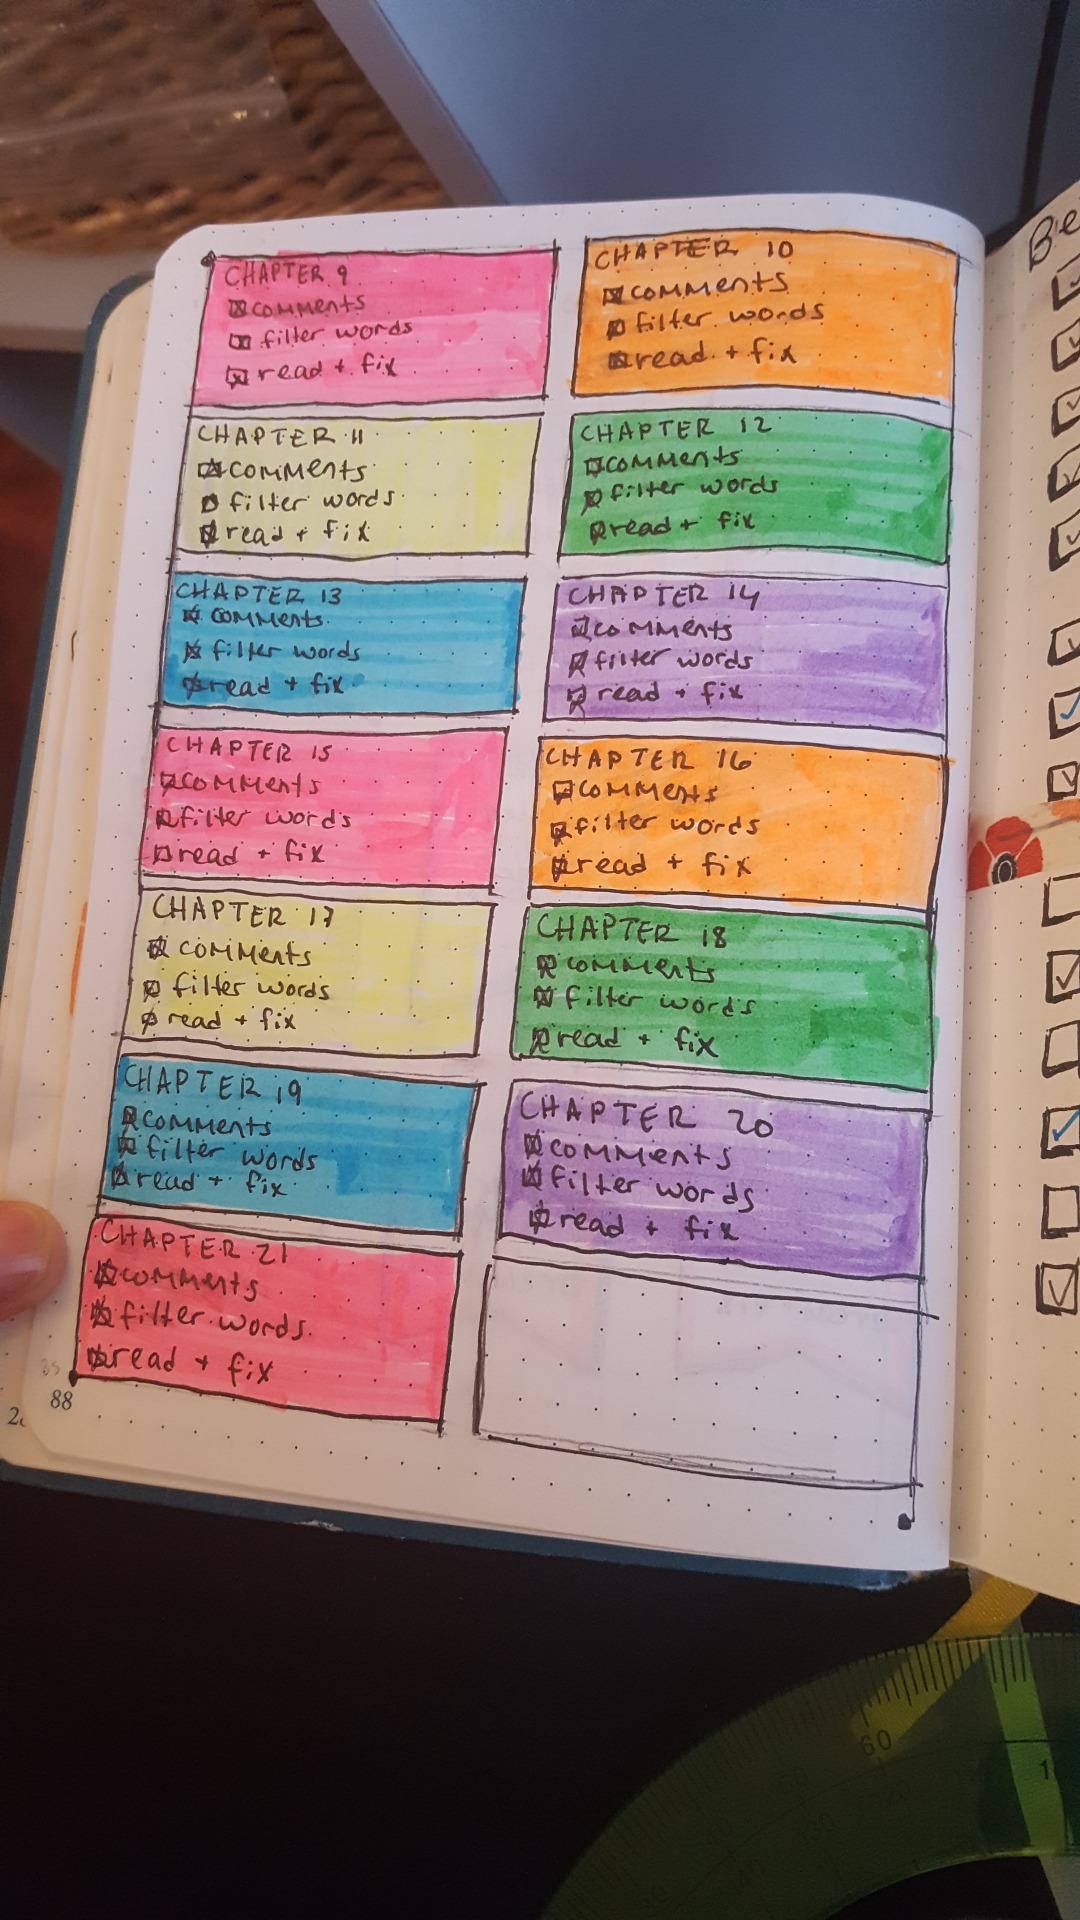 CHAPTER 9
comments
filter words
read + fix
CHAPTER 10
comments
filter words
read + fix
CHAPTER 11
comments
filter words
read + fix
CHAPTER 12
comments
filter words
read + fix
CHAPTER 13
comments
filter words
read + fix
CHAPTER 14
comments
filter words
read + fix
CHAPTER 15
comments
filter words
read + fix
CHAPTER 16
comments
filter words
read + fix
CHAPTER 17
comments
filter words
read + fix
CHAPTER 18
comments
filter words
read + fix
CHAPTER 19
comments
filter words
read + fix
CHAPTER 20
comments
filter words
read + fix
CHAPTER 21
comments
filter words
read + fix
88
Be
60